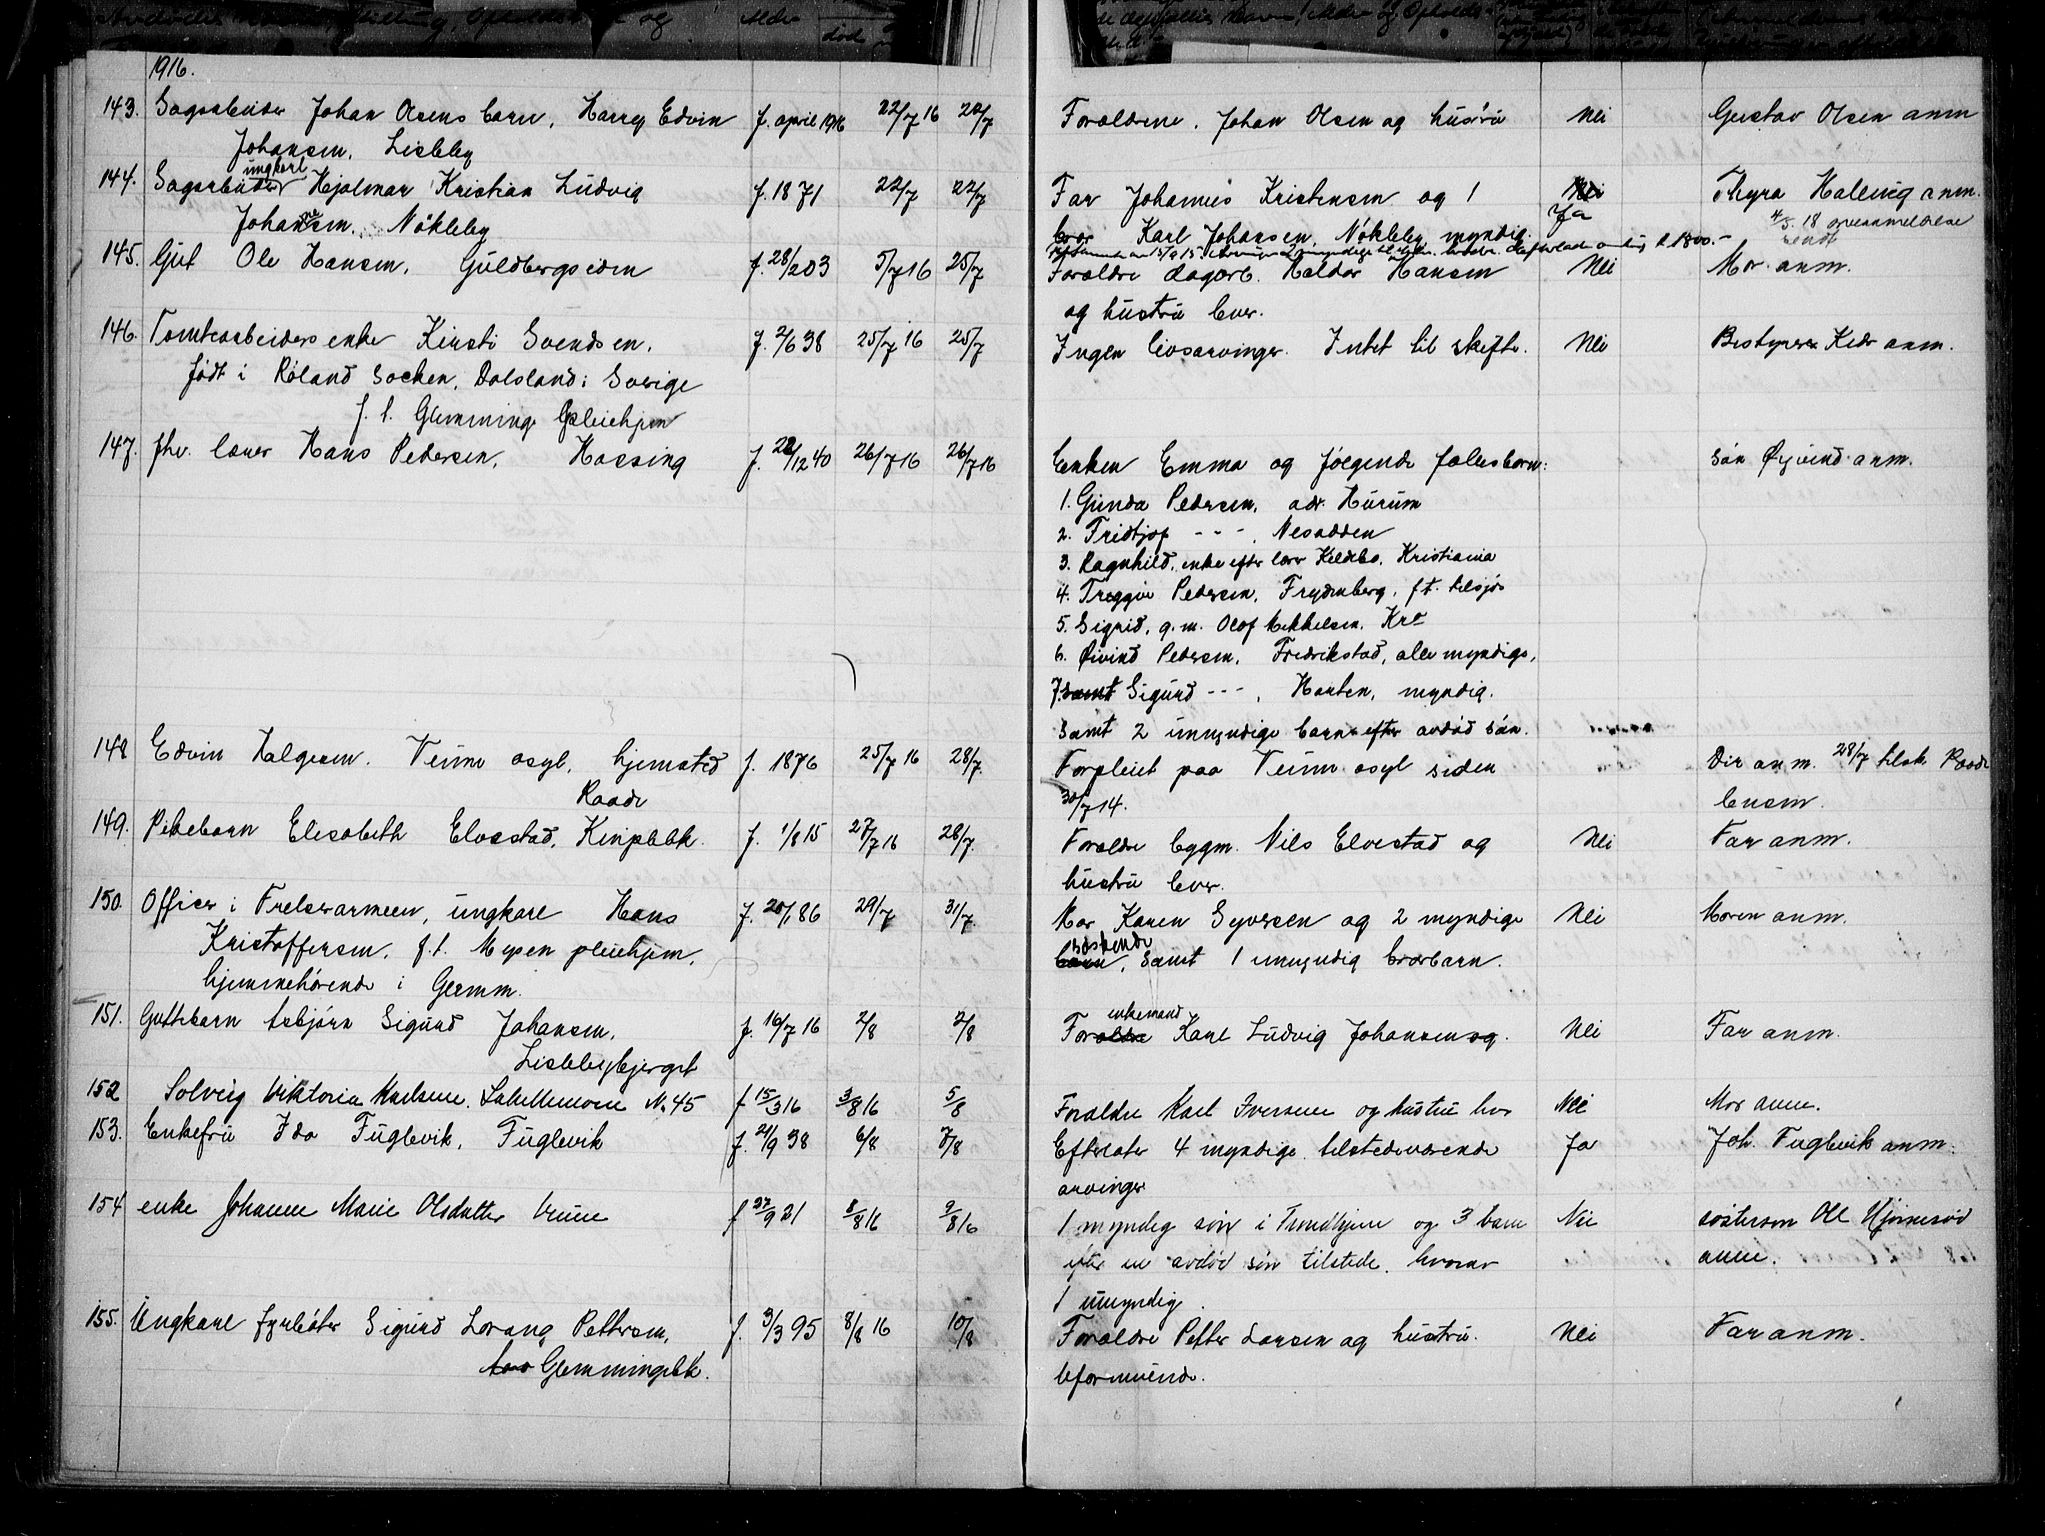 1916.
143. Sagarbeider Johan Olsens barn, Harry Edvin f. april 1916 22/7 16 22/7 Forældrene, Johan Olsen og hustru Nei Gustav Olsen anm
Johansen, Lisleby
ungkarl
144. Sagarbeider Hjalmar Kristian Ludvig f. 1871 22/7 22/7 Far Johannes Kristensen og 1 Nei Thyra Halling anm.
Ja
Johansen, Nökleby bror Karl Johansen, Nökleby myndig. 4/5 18 sendt
145. Gut Ole Hansen, Guldbergseden f. 28/2 03 5/7 16 25/7 Forældre dagarb. Haldor Hansen Nei Mor anm.
og hustru lever.
146. Tomtearbeiders enke Kirsti Svendsen, f. 2/6 38 25/7 16 25/7 Ingen livsarvinger. Intet til skifte. Nei Bestyrer anm.
født i Röland Socken, Dalsland i Sverige
f. t. Glemminge Pleiehjem
147. fhv. lærer Hans Pedersen, Hassing f. 22/12 40 26/7 16 26/7 16 Enken Emma og følgende fælesbarn: sön Øyvind anm.
1. Gunda Pedersen, adr. Hurum
2. Fridtjof - - - , Nesodden
3. Ragnhild, enke efter lærer Kildebo, Kristiania
4. Tryggve Pedersen, Frydenberg, f.t. tilsjös
5. Sigrid, g.m. Olof Mikkelsen, Kra
6. Øivind Pedersen, Fredrikstad, alle myndige,
7. samt Sigurd - - - , Horten, myndig.
samt 2 umyndige barn efter avdød sön.
148 Edvin Halgesen, Veum asyl, hjemsted f. 1876 25/7 16 28/7. Forpleiet paa Veum asyl siden Dir anm. 28/7 tilsk. Raade
Raade 30/7 14. lensm.
149. Pikebarn Elisabeth Elvestad, f. 1/8 15 27/7 16 28/7. Forældre bygm. Nils Elvestad og Nei Far anm.
hustru lever.
150. Officer i Frelsesarmeen, ungkarl Hans f. 20/1 86 29/7 31/7 Mor Karen Syversen og 2 myndige Nei Moren anm.
söskende
Kristoffersen, f.t. Mysen pleiehjem, barn, samt 1 umyndig brorbarn.
hjemmehörende i Glemm.
151. Guttebarn Asbjörn Sigurd Johansen, f. 16/7 16 2/8 2/8 Forældre enkemand Karl Ludvig Johansen og. Nei Far anm.
Lislebybjerget
152 Solveig Viktoria Karlsen, Labellemoen No 45 f 15/3 16 3/8 16 5/8 Forældre Karl Iversen og hustru Nei Mor anm.
153. Enkefru Ida Fuglevik, Fuglevik f. 21/9 38 6/8 7/8 Efterlater 4 myndige tilstedeværende Ja Joh. Fuglevik anm.
arvinger
154 enke Johanne Marie Olsdatter Veum f 27/9 21 8/8 16 9/8 16 1 myndig sön i Trondhjem og 3 barn Nei sösterson Ole
efter en avdöd sön tilstede. hvorav anm.
1 umyndig.
155. Ungkarl fyrböter Sigurd Lorang Pettersen, f. 3/3 95 8/8 16 10/8 Forældre Petter Larsen og hustru. Nei Far anm.
Glemmingebk. uformuende.